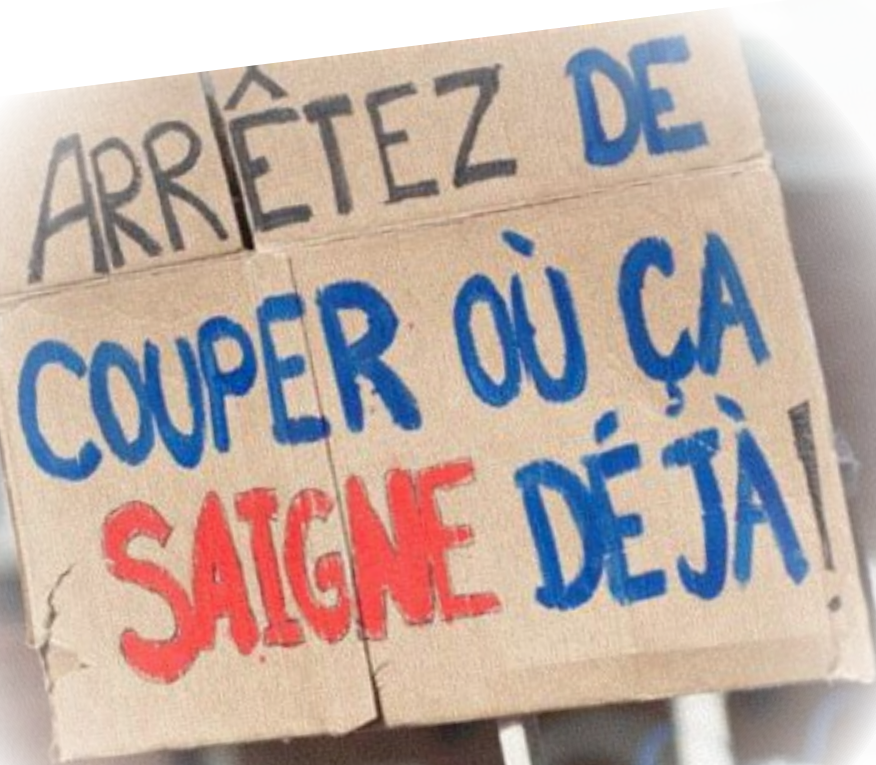 ARRÊTEZ DE
COUPER OÙ ÇA
SAIGNE DÉJÀ!